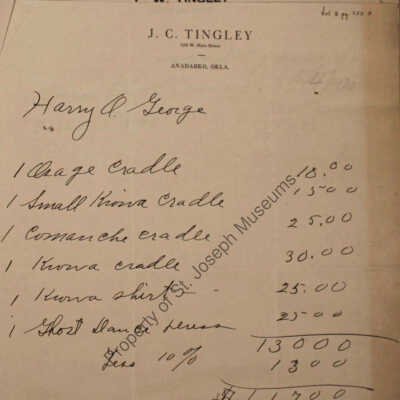 W. TINGLEY
J. C. TINGLEY
ANADARKO, OKLA.
Harry A. George
1 Osage cradle 10.00
1 Small Kiowa cradle 15.00
1 Comanche cradle 25.00
1 Kiowa cradle 30.00
1 Kiowa shirt - 25.00
1 Ghost Dance 25.00
Less 10% 13000
1300
$11700
Property of St. Joseph Museums